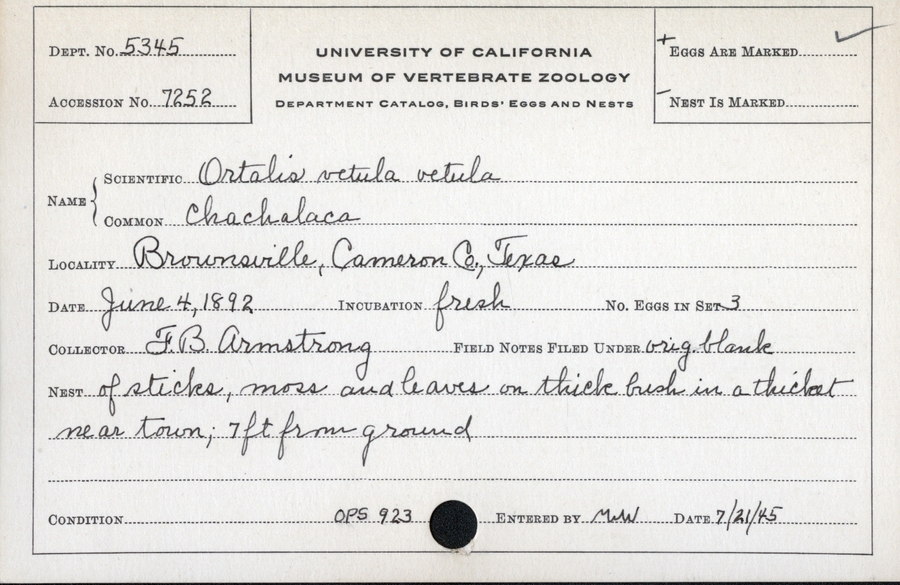 DEPT. No. 5345
ACCESSION No. 7252
UNIVERSITY OF CALIFORNIA
MUSEUM OF VERTEBRATE ZOOLOGY
DEPARTMENT CATALOG, BIRDS' EGGS AND NESTS
+ EGGS ARE MARKED ✓
– NEST IS MARKED
NAME { SCIENTIFIC Ortalis vetula vetula
COMMON Chachalaca
LOCALITY Brownsville, Cameron Co., Texas
DATE June 4, 1892 INCUBATION fresh No. EGGS IN SET 3
COLLECTOR F.B. Armstrong FIELD NOTES FILED UNDER orig. blank
NEST of sticks, moss and leaves on thick bush in a thicket
near town; 7 ft from ground
CONDITION OPS 923 ENTERED BY MWW DATE 7/21/45